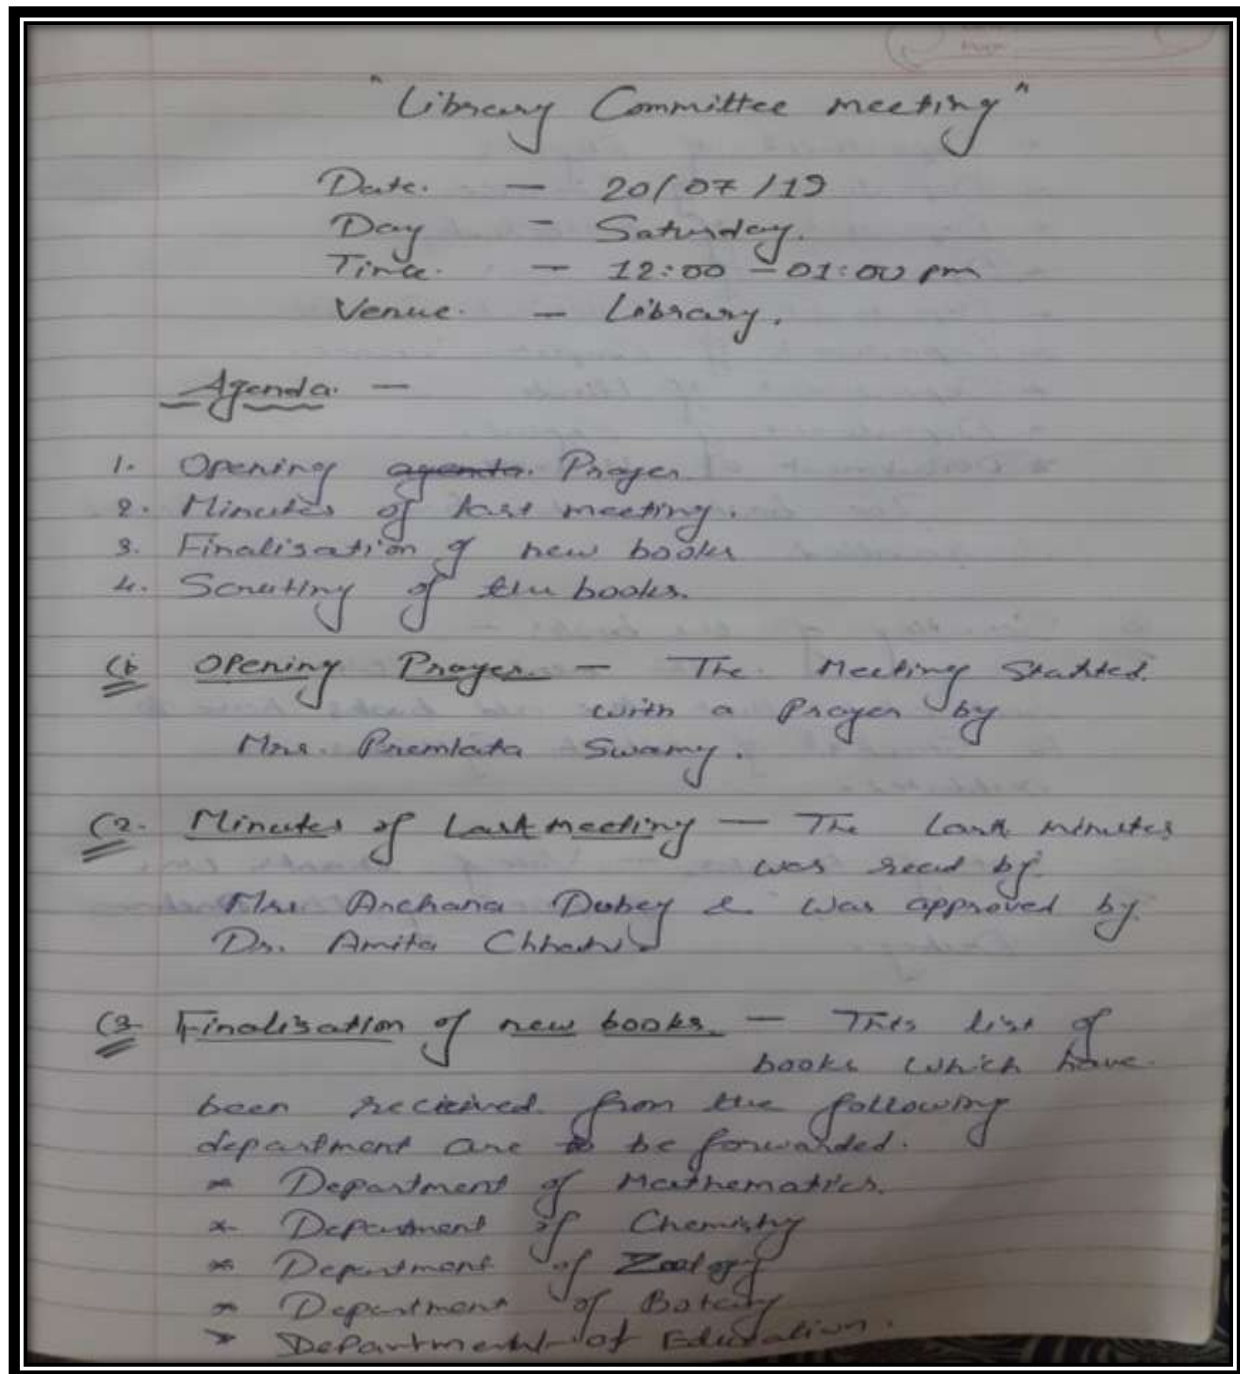 "Library Committee meeting"
Date. — 20/07/19
Day — Saturday.
Time. — 12:00 – 01:00 pm
Venue. — Library.
Agenda. —
1. Opening agenda. Prayer.
2. Minutes of last meeting.
3. Finalisation of new books
4. Scrutiny of the books.
(1. Opening Prayer. — The Meeting Started.
with a Prayer by
Mrs. Premlata Swamy.
(2. Minutes of Last meeting — The Last minutes
was read by.
Mrs Archana Dubey & was approved by.
Dr. Amita
(3. Finalisation of new books. — This list of
books which have.
been recieived from the following
department are to be forwarded.
* Department of Mathematics.
* Department of Chemistry
* Department of Zoology
* Department of Botany
* Department of Education.